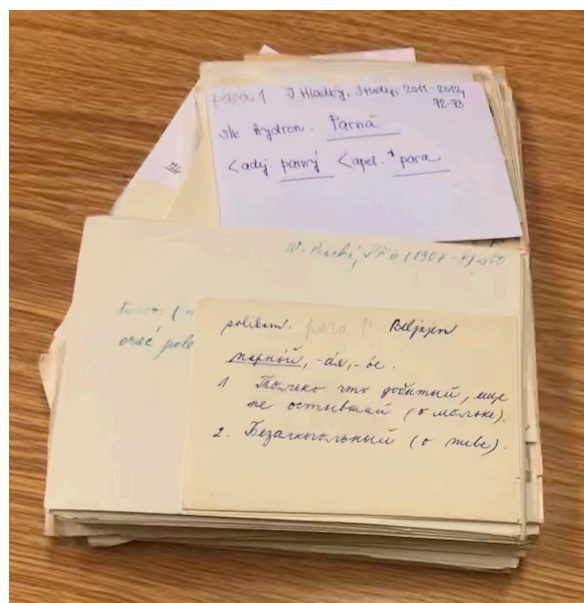 para 1 J Hladký, Studip 2011-2012,
72-73
slk hydron. Parná
< adj. parný < apel. *para
W.
orać pole
polisem. para 1 Beljajen
парной, -ая, -ое.
1. Только что добытый, еще
не остывший (о молоке).
2. Безалкогольный (о пиве).